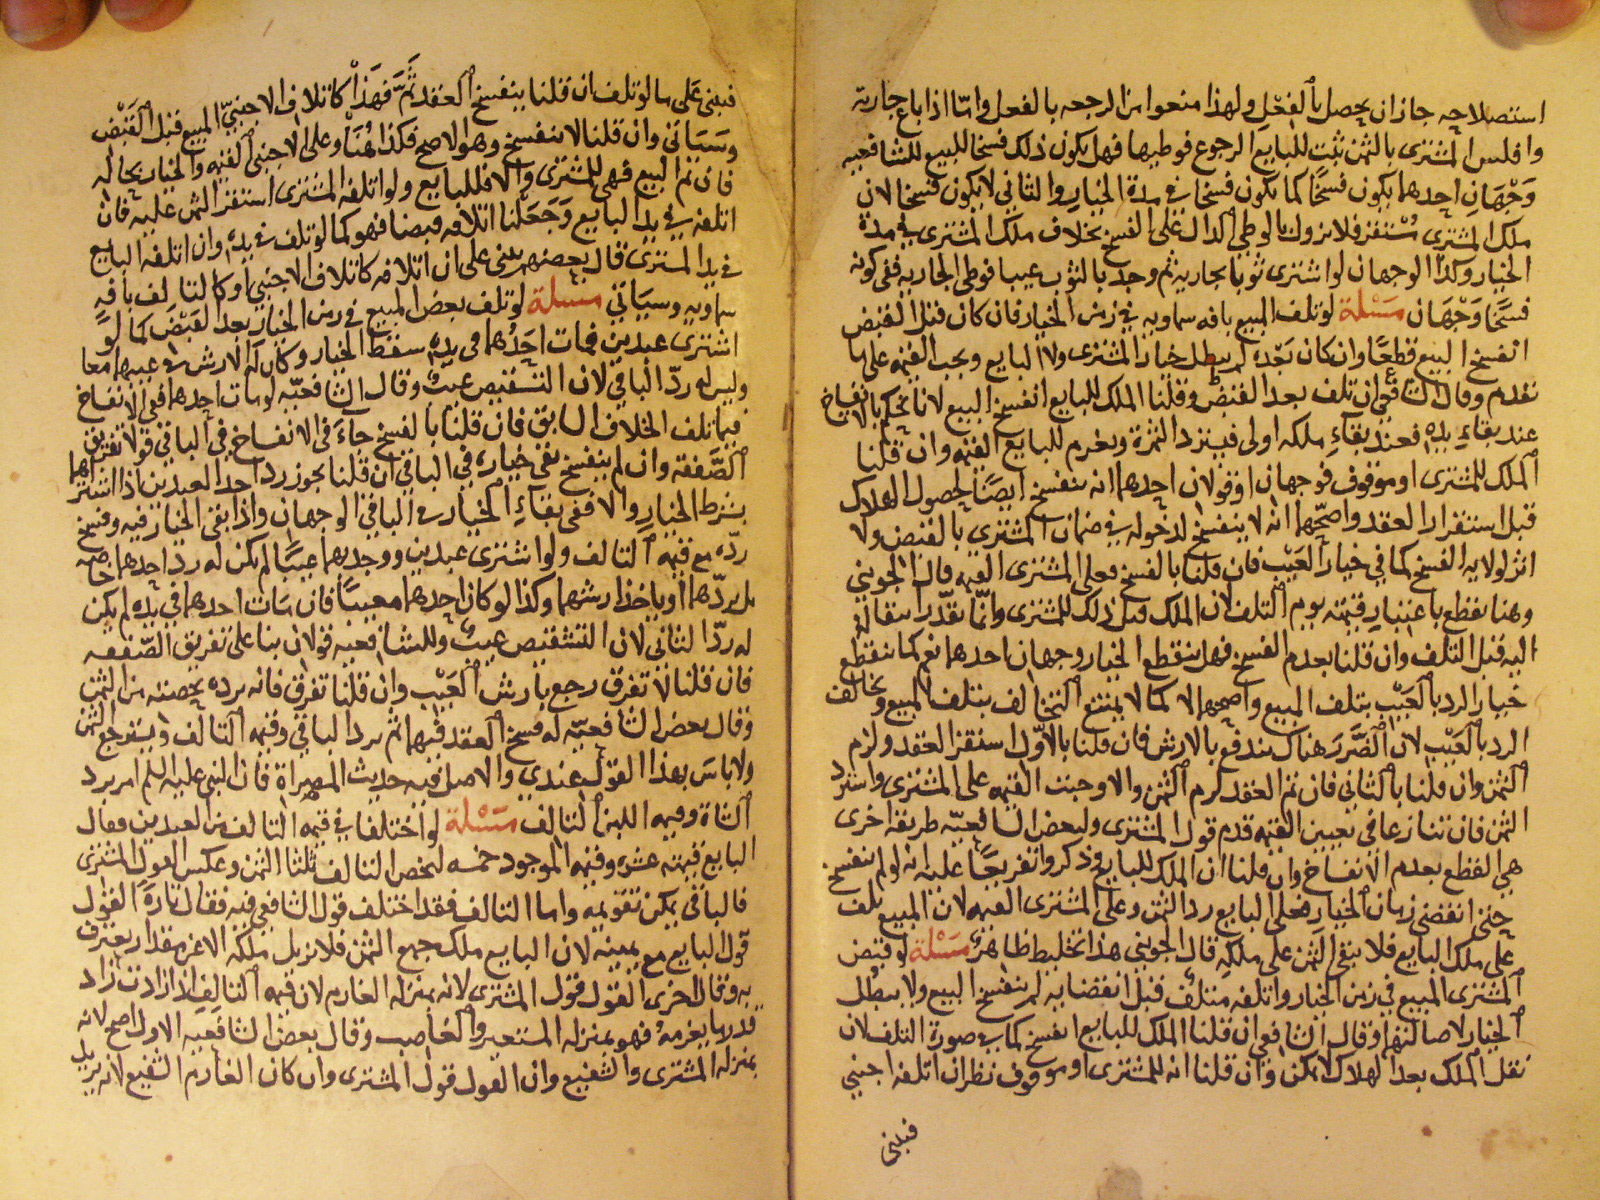 استصلاحه جاز ان يحصل بالفعل ولهذا منعوا من الرجعه بالفعل واما اذا باع جاريه
وافلس المشترى بالثمن ثبت للبايع الرجوع فوطيها فهل يكون ذلك فسخا للبيع للشافعيه
وَجْهَانِ احدهما يكون فسخًا كما يكون فسخا في مدة الخيارِ والثاني لا يكون فسخا لان
ملك المشتري مُسْتقر فلا يزول بالوطي الدال على الفسخ بخلاف ملك المشترى في مدة
الخيار وكذا الوجهان لو اشترى ثوبا بجاريه ثم وجد بالثوب عيبا فوطى الجاريه ففي كونه
فسخًا وَجْهَان مَسْئلة لو تلف المبيع بافه سماويه في زمن الخيار فان كان قبل القبض
انفسخ البيع قطعًا وان كان بَعْده لم يبطل خيار المشترى ولا البايع ويجب القيمه على ما
تقدم وقال الشافعي ان تلف بعد القبض وقلنا الملك للبايع انفسخ البيع لانا نحكم بالانفساخ
عند بقاءِ يده فعند بقاءِ ملكه اولى فيسترد الثمن ويغرم للبايع القيمه وان قلنا
الملك للمشترى او موقوف فوجهان او قولان احدهما انه ينفسخ ايضًا لحصول الهلاك
قبل استقرار العقد واصحّهما انه لا ينفسخ لدخوله في ضمان المشتري بالقبض ولا
اثر لولايه الفسخ كما في خيار العَيْب فان قلنا بالفسخ فعلى المشترى القيمه قال الجويني
وهنا يقطع باعتبارِ قيمته يوم التلف لان الملك قبل ذلك للمشترى وانّما يقدّر انتقاله
اليه قبل التلف وان قلنا بعدم الفسخ فهل ينقطع الخيار وجهان احدهما نعم كما ينقطع
خيار الرد بالعَيْب بتلف المبيع واصحهما لا كما لا يمتنع التخالف بتلف المبيع ويخالف
الرد بالعَيْب لان الضَّرَر هناك يندفع بالارش فان قلنا بالاوّل استقر العقد ولزم
الثمن وان قلنا بالثاني فان تم العقد لزم الثمن والا وجبت القيمه على المشترى واسترد
الثمن فان تنازعا في تعيين القيمه قدم قول المشترى ولبعض الشافعيّه طريقه اخرى
هي القطع بعدم الانفساخ وان قلنا ان الملك للبايع وذكروا تفريعًا عليه انه لو لم ينفسخ
حتى انقضى زمان الخيار فعلى البايع رد الثمن وعلى المشترى القيمه لان المبيع تلف
على ملك البايع فلا يبقى الثمن على ملكهِ قال الجويني هذا تخليط ظاهر مَسْئلة لو قبض
المشترى المبيع في زمن الخيار واتلفه متلف قبل انقضايه لم ينفسخ البيع ولا يبطل
الخيار لاصالتهما وقال الشافعي ان قلنا الملك للبايع انفسخ كما في صورة التلف لان
نقل الملك بعد الهلاك لا يمكن وان قلنا انه للمشترى او موقوف نظر ان اتلفه اجنبي
فبنى
فبنى على ما لو تلف ان قلنا ينفسخ العقد ثَمَّ فهَذا كاتلاف الاجنبيّ المبيع قبل القَبْض
وسَيَاتي وان قلنا لا ينفسخ وهو الاصح فكذا هُنَا وعلى الاجنبي القيمه والخيار بحاله
فان تم البيع فهي للمشترى والا فللبايع ولو اتلفه المشترى استقر الثمن عليه فان
اتلفه في يد البايع وَجَعَلنا اتلافه قبضا فهو كما لو تلف في يده وان اتلفه البايع
في يد المشترى قال بعضهم يبنى على ان اتلافه كاتلاف الاجنبي او كالتالف بافهٍ
سماويه وسياتي مسئلة لو تلف بعض المبيع في زمن الخيار بعد القبْضَ كما لو
اشترى عبدين فمات احَدُهما في يده سقط الخيار وكان له الارش في عيبهما معا
وليس له ردّ الباقي لان التشقيص عيبٌ وقال الشافعيّه لو مات احدهما ففي الانفساخ
فيما تلف الخلاف السابق فان قلنا بالفسخ جاءَ في الانفساخ في الباقي قولا تفريق
الصَّفقه وان لم ينفسخ بقى خياره في الباقي ان قلنا يجوز رد احد العبدين اذا اشتراهما
بشرط الخيارِ والا ففى بقاءِ الخيار في الباقي الوجهان واذا بقى الخيار فيه وفسخ
ردّه مع قيمه التالف ولو اشترى عبدين ووجد بهما عيبًا لم يكن له رد احدهما خاصه
بل يردّهما او ياخذ ارشهما وكذا لو كان احدهما معيبًا فان مات احدهما في يده لم يكن
له ردّ الثاني لان التشقيص عيبٌ وللشافعيه قولان بنا على تفريق الصّفقه
فان قلنا لا تفرق رجع بارش العَيْب وان قلنا تفرق فانه يرده بحصته من الثمن
وقال بعض الشافعيّه له فسخ العقد فيهما ثم يرد الباقي وقيمه التالف ويسترجع الثمن
ولا باسَ بهذا القول عندي والاصل فيه حديث المصراة فان النبي عليه السلم امر برد
الشاة وقيمه اللبن التالف مَسْئلة لو اختلفا في قيمه التالف من العبدين فقال
البايع قيمته عشره وقيمه الموجود خمسه ليخص التالف ثلثا الثمن وعكس القول المشترى
فالباقى يمكن تقويمه واما التالف فقد اختلف قول الشافعي فيه فقال تارةً القول
قول البايع مع يمينه لان البايع ملك جميع الثمن فلا نزيل ملكه الا عن مقدار يعترف
به وقال اخرى القول قول المشترى لانه بمنزله الغارم لان قيمه التالف اذا زادت زاد
قدر ما يغرمهُ فهو بمنزله المستعير والغاصب وقال بعض الشافعيه الاول اصح لانه
بمنزله المشترى والشفيع وان القول قول المشترى وان كان الغارم الشفيع لانه يزيل